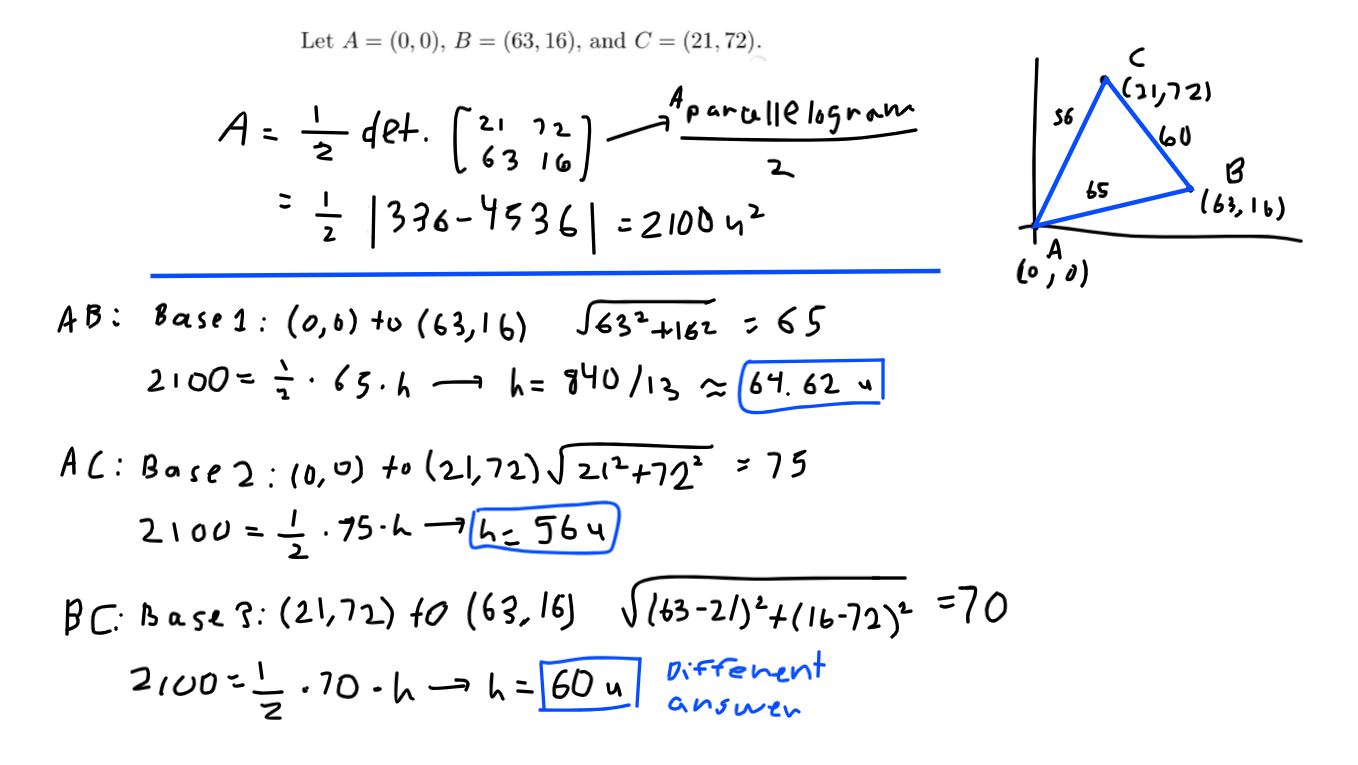 Let A = (0, 0), B = (63, 16), and C = (21, 72).
A = 1/2 det. [21 72; 63 16] → A parallelogram / 2
= 1/2 |336 - 4536| = 2100 u²
C
(21,72)
56
60
B
65
(63,16)
A
(0,0)
AB: Base 1: (0,0) to (63,16) √63²+16² = 65
2100 = 1/2 · 65 · h → h = 840/13 ≈ 64.62 u
AC: Base 2: (0,0) to (21,72) √21²+72² = 75
2100 = 1/2 · 75 · h → h = 56 u
BC: Base 3: (21,72) to (63,16) √(63-21)²+(16-72)² = 70
2100 = 1/2 · 70 · h → h = 60 u
Different
answer